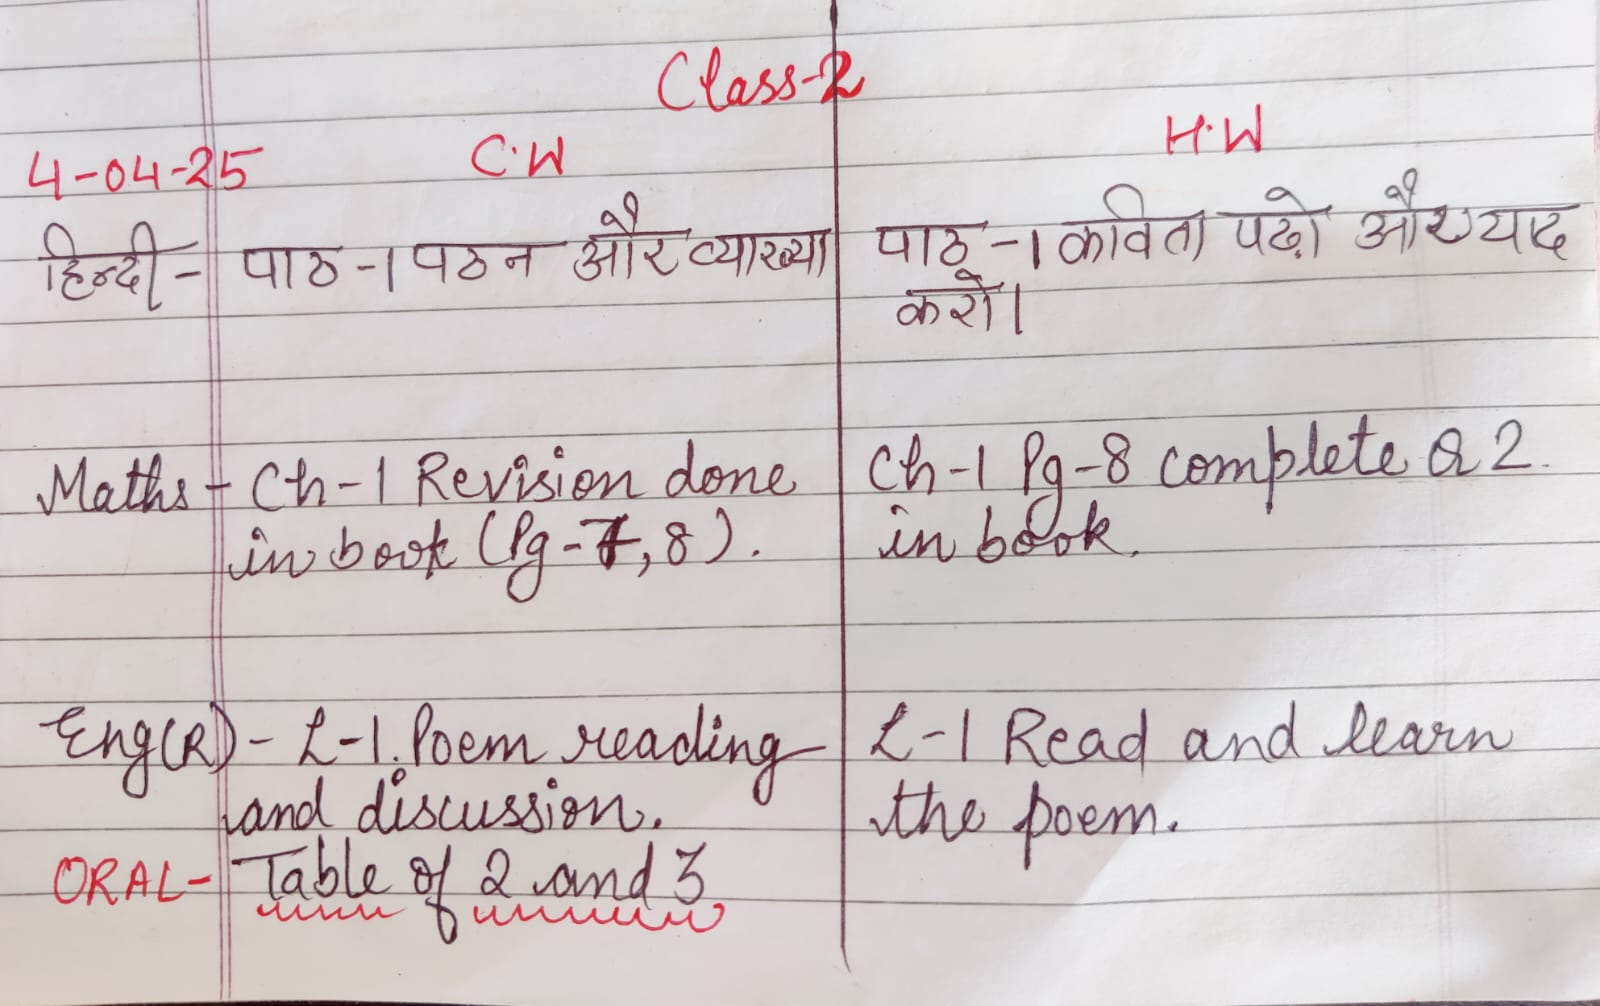 Class-2
4-04-25 C.W H.W
हिन्दी - पाठ -1 पठन और व्याख्या
पाठ -1 कविता पढ़ो और याद
करो।
Maths - Ch-1 Revision done
in book (Pg-7, 8).
Ch-1 Pg-8 complete Q 2.
in book.
Eng(R) - L-1. Poem reading
and discussion.
L-1 Read and learn
the poem.
ORAL- Table of 2 and 3